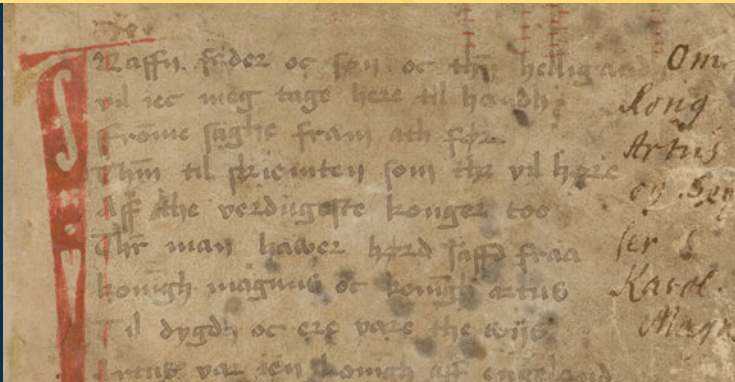 I Naffn fader oc søn oc thn helligaand
vil iec meg tage here til handh
fromme saghe fram ath føre
Thm til skiemten som thr vil høre
Aff the verdugeste konger toe
Thr man hawer hørd saffd fraa
konigh magnus oc konigh artus
Til dygdh oc ere vare the wijs
Artus var ien konigh aff engeland
Om
Kong
Artus
og Key
ser
Karol.
Magn